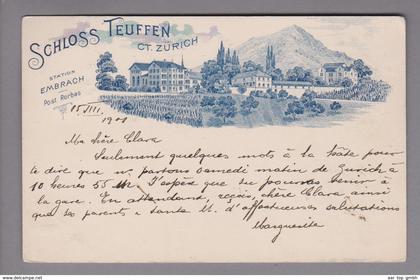 SCHLOSS TEUFFEN
CT. ZÜRICH
STATION
EMBRACH
Post Rorbas
15/III.
1901
Ma chère Clara
Seulement quelques mots à la hâte pour
te dire que n. partons samedi matin de Zurich à
10 heures 55 M. J'espère que tu pourras venir à
la gare. En attendant, reçois, chère Clara ainsi
que tes parents & tante M. d'affectueuses salutations
Marguerite
(c) a-z top gmbh